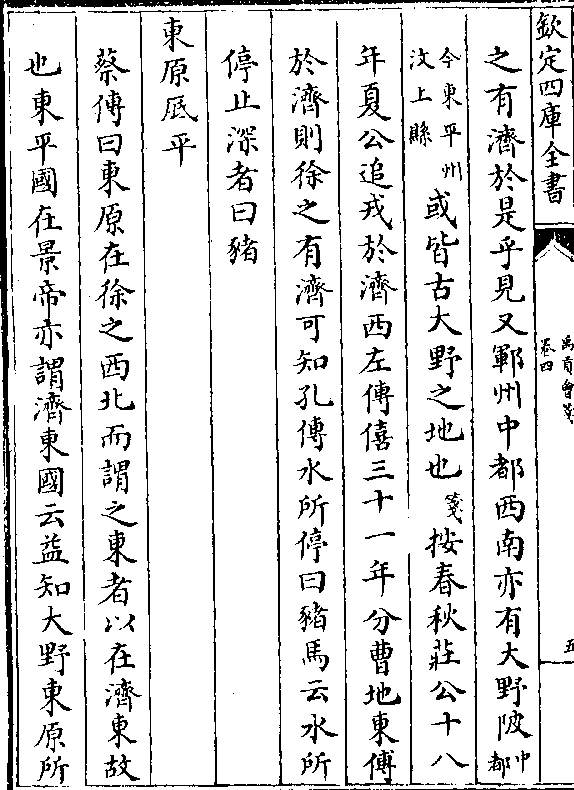 欽定四庫全書
禹貢會箋
卷四
五
之有濟於是乎見又鄆州中都西南亦有大野陂中都
今東平州汶上縣或皆古大野之地也箋按春秋莊公十八
年夏公追戎於濟西左傳僖三十一年分曹地東傅
於濟則徐之有濟可知孔傳水所停曰豬馬云水所
停止深者曰豬
東原厎平
蔡傳曰東原在徐之西北而謂之東者以在濟東故
也東平國在景帝亦謂濟東國云益知大野東原所